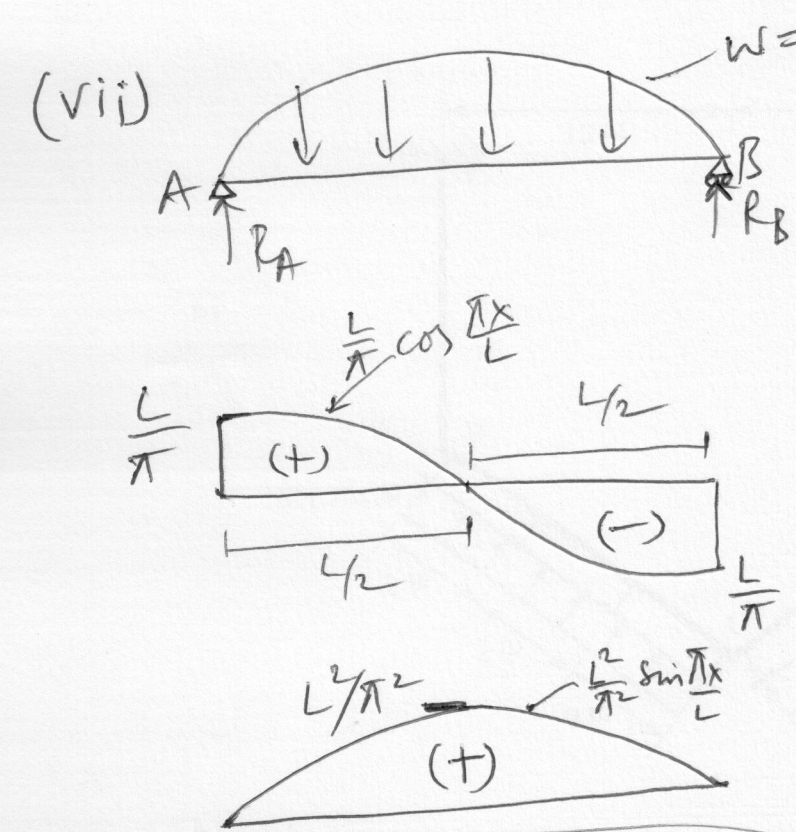 (vii)
W=
A
B
R_A
R_B
L/π cos πx/L
L/π
(+)
L/2
L/2
(−)
L/π
L²/π²
L²/π² sin πx/L
(+)